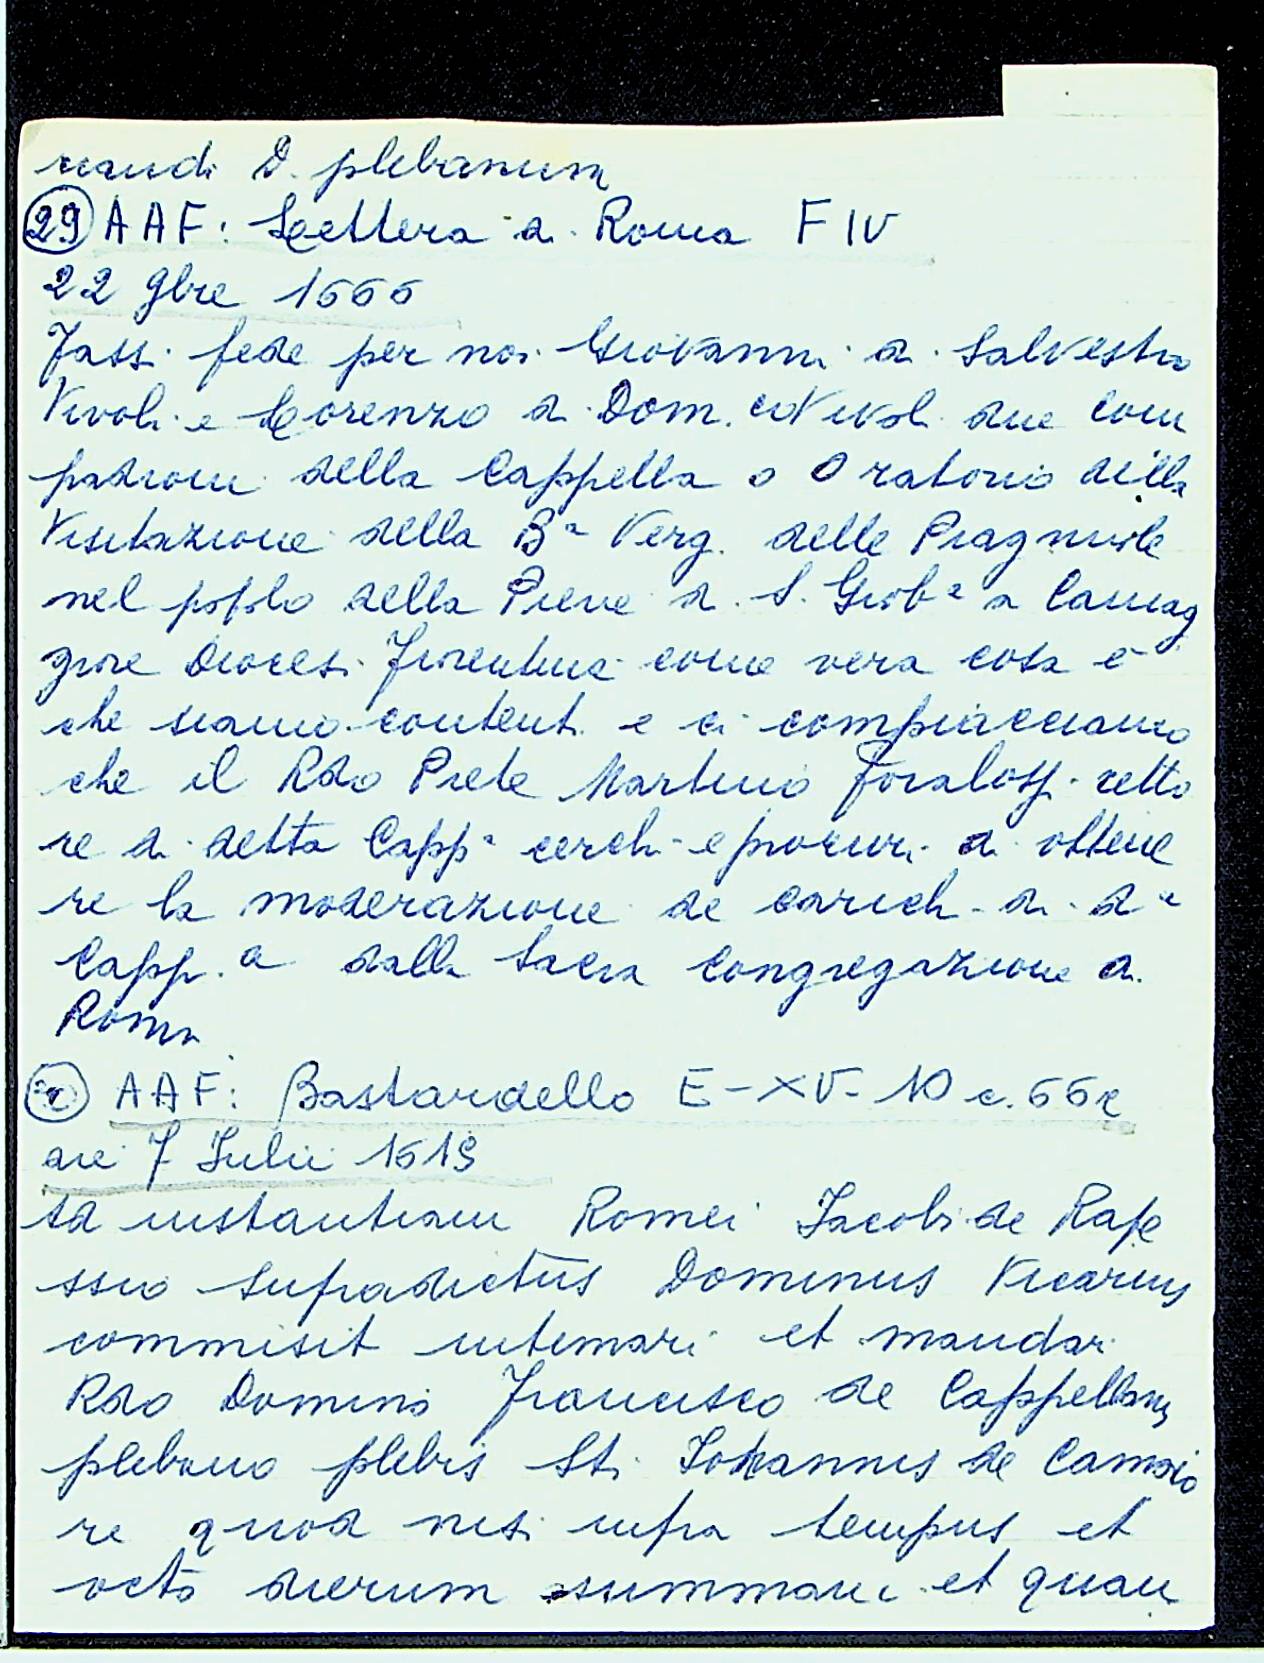 nandi D. plebanum
29 AAF: Lettera a Roma F IV
22 9bre 1666
Fassi fede per noi Giovanni di Salvestro
Vivoli e Lorenzo di Dom. co Vivoli due com
padroni della Cappella o Oratorio della
Visitazione della Ba Verg. delle Pragnuole
nel popolo della Pieve di S. Giob a a Camag
giore Diocesi Fiorentina come vera cosa è
che siamo contenti e ci compiacciamo
che il Rdo Prete Martino retto
re di detta Capp a cerchi e procuri di ottene
re la moderazione de carichi di da
Capp. a dalla Sacra Congregazione di
Roma
AAF: Bastardello E-XV-10 c. 66r
die 7 Julii 1619
Ad instantiam Romei Jacobi de
ssio supradictus Dominus Vicarius
commisit intimari et mandari
Rdo Domino Francisco de Cappellanis
plebano plebis Sti Johannis de Camaio
re quod nisi infra tempus et
octo dierum summarie et quam